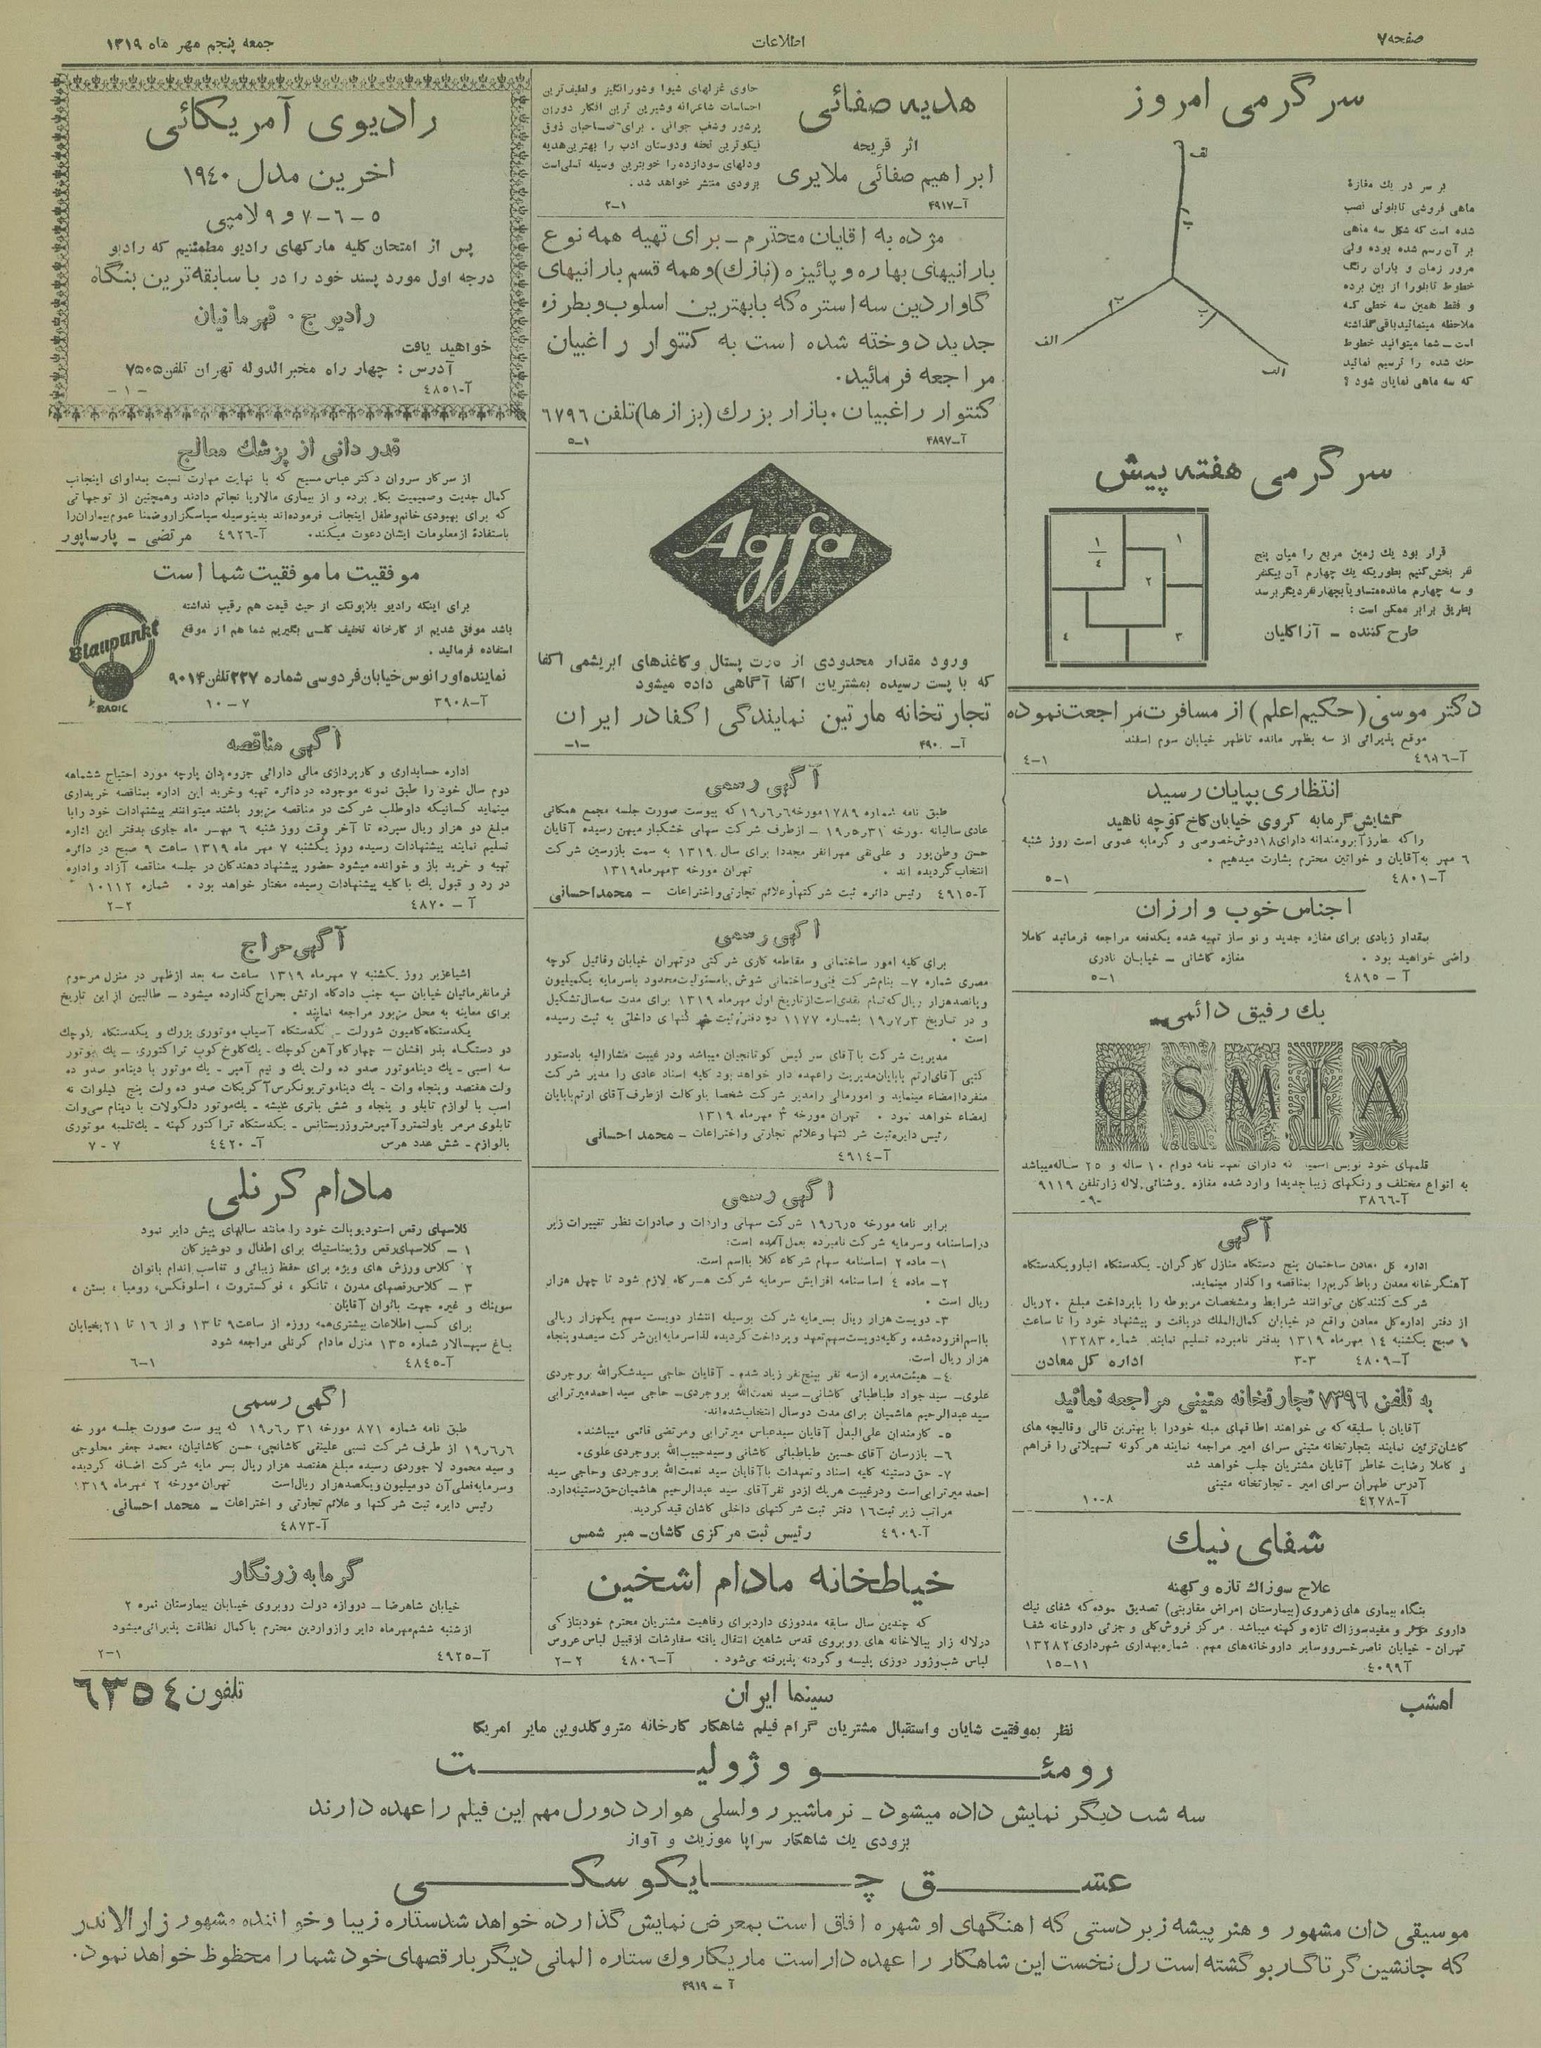 صفحه ۷
اطلاعات
جمعه پنجم مهر ماه ۱۳۱۹
سرگرمی امروز
بر سر در یك مغازهٔ
ماهی فروشی تابلوئی نصب
شده است که شکل سه ماهی
بر آن رسم شده بوده ولی
مرور زمان و باران رنگ
خطوط تابلورا از بین برده
و فقط همین سه خطی که
ملاحظه مینمائید باقی گذاشته
است ـ شما میتوانید خطوط
حك شده را ترسیم نمائید
که سه ماهی نمایان شود ؟
الف
ب
الف
ب
الف
ب
سرگرمی هفته پیش
قرار بود یك زمین مربع را میان پنج
نفر بخش کنیم بطوریکه یك چهارم آن بیکنفر
و سه چهارم مانده متساویاً بچهار نفر دیگر برسد
بطریق برابر ممکن است :
طرح کننده ـ آزاکلیان
۱/۴
۱
۲
۳
٤
دکتر موسی (حکیم اعلم) از مسافرت مراجعت نموده
موقع پذیرائی از سه بظهر مانده تاظهر خیابان سوم اسفند
آ-٤۹۸٦ ۱-٤
انتظاری بپایان رسید
گشایش گرمابه کروی خیابان کاخ کوچه ناهید
راکه بطرز آبرومندانه دارای ۱۸ دوش خصوصی و گرمابه عمومی است روز شنبه
٦ مهر به آقایان و خواتین محترم بشارت میدهیم .
آ-٤۸۰۱ ۱-۵
اجناس خوب و ارزان
بمقدار زیادی برای مغازه جدید و نو ساز تهیه شده یکدفعه مراجعه فرمائید کاملا
راضی خواهید بود . مغازه کاشانی ـ خیابان نادری
آ - ٤۸۹۵ ۱-۵
یك رفیق دائمی
OSMIA
قلمهای خود نویس اسمیا که دارای تعهد نامه دوام ۱۰ ساله و ۲۵ ساله میباشد
به انواع مختلف و رنگهای زیبا جدیدا وارد شده مغازه روشنائی لاله زار تلفن ۹۱۱۹
آ-۳۸٦٦ -۹-
آگهی
اداره کل معادن ساختمان پنج دستگاه منازل کارگران ـ یکدستگاه انبار ویکدستگاه
آهنگرخانه معدن رباط کریم را بمناقصه واگذار مینماید.
شرکت کنندگان می‌توانند شرایط ومشخصات مربوطه را باپرداخت مبلغ ۲۰ ریال
از دفتر اداره کل معادن واقع در خیابان کمال الملك دریافت و پیشنهاد خود را تا ساعت
صبح یکشنبه ۱٤ مهرماه ۱۳۱۹ بدفتر نامبرده تسلیم نمایند. شماره ۱۳۲۸۳
آ-٤۸۰۹ ۳-۳ اداره کل معادن
به تلفن ۷۳۹٦ تجارتخانه متینی مراجعه نمائید
آقایان با سلیقه که می خواهند اطاقهای مبله خودرا با بهترین قالی وقالیچه های
کاشان تزئین نمایند بتجارتخانه متینی سرای امیر مراجعه نمایند هرگونه تسهیلاتی را فراهم
و کاملا رضایت خاطر آقایان مشتریان جلب خواهد شد
آدرس طهران سرای امیر ـ تجارتخانه متینی
آ-٤۲۷۸ ۸-۱۰
شفای نیك
علاج سوزاك تازه و کهنه
بنگاه بیماری های زهروی (بیمارستان امراض مقاربتی) تصدیق نموده که شفای نیك
داروی مؤثر و مفید سوزاك تازه و کهنه میباشد . مرکز فروش کلی و جزئی داروخانه شفا
تهران ـ خیابان ناصرخسرو وسایر داروخانه‌های مهم . شماره بهداری شهرداری ۱۳۲۸۲
آ۴۰۹۹ ۱۱-۱۵
هدیه صفائی
اثر قریحه
ابراهیم صفائی ملایری
حاوی غزلهای شیوا وشورانگیز ولطیف‌ترین
احساسات شاعرانه وشیرین ترین افکار دوران
پرشور وشغب جوانی . برای صاحبان ذوق
نیکوترین تحفه ودوستان ادب را بهترین هدیه
ودلهای سودازده را خوبترین وسیله تسلی است
بزودی منتشر خواهد شد .
آ-٤۹۱۷ ۱-۲
مژده به آقایان محترم ـ برای تهیه همه نوع
بارانیهای بهاره و پائیزه (نازك) وهمه قسم بارانیهای
گاواردین سه استره که بابهترین اسلوب وبطرزه
جدید دوخته شده است به کنتوار راغبیان
مراجعه فرمائید.
کنتوار راغبیان . بازار بزرك (بزازها) تلفن ٦۷۹٦
آ-٤۸۹۷ ۱-۵
Agfa
ورود مقدار محدودی از کارت پستال وکاغذهای ابریشمی اکفا
که با پست رسیده بمشتریان اکفا آگاهی داده میشود
تجارتخانه مارتین نمایندگی اکفا در ایران
-۱-
آگهی رسمی
طبق نامه شماره ۱۷۸۹ مورخه ۱۹ر٦ر٦ که پیوست صورت جلسه مجمع همگانی
عادی سالیانه مورخه ۱۹ر۵ر۳۱ ـ ازطرف شرکت سهامی خشکبار میهن رسیده آقایان
حسن وطن‌پور و علی‌نقی مهرانفر مجددا برای سال ۱۳۱۹ به سمت بازرسین شرکت
انتخاب گردیده اند . تهران مورخه ۳ مهرماه ۱۳۱۹
آ-٤۹۱۵ رئیس دائره ثبت شرکتها وعلائم تجارتی واختراعات ـ محمد احسانی
آگهی رسمی
برای کلیه امور ساختمانی و مقاطعه کاری شرکتی درتهران خیابان رفائیل کوچه
مصری شماره ۷ـ بنام شرکت فنی وساختمانی شوش بامسئولیت محدود باسرمایه یکمیلیون
وپانصد هزار ریال که تمام نقدی است از تاریخ اول مهرماه ۱۳۱۹ برای مدت سه سال تشکیل
و در تاریخ ۱۹ر۷ر۳ بشماره ۱۱۷۷ در دفتر ثبت شرکتهای داخلی به ثبت رسیده
است .
مدیریت شرکت با آقای سرکیس کوتانجیان میباشد ودر غیبت مشارالیه بادستور
کتبی آقای ارتم پاپایان مدیریت راعهده دار خواهد بود کلیه اسناد عادی را مدیر شرکت
منفردا امضاء مینماید و امور مالی را مدیر شرکت شخصا باوکالت ازطرف آقای ارتم پاپایان
امضاء خواهد نمود . تهران مورخه ۳ مهرماه ۱۳۱۹
رئیس دایره ثبت شرکتها وعلائم تجارتی واختراعات ـ محمد احسانی
آ-٤۹۱٤
آگهی رسمی
برابر نامه مورخه ۱۹ر٦ر۵ شرکت سهامی واردات و صادرات نظر تغییرات زیر
در اساسنامه وسرمایه شرکت نامبرده بعمل آمده است:
۱ـ ماده ۲ اساسنامه سهام شرکاء کلا بااسم است.
۲ـ ماده ٤ اساسنامه افزایش سرمایه شرکت هرگاه لازم شود تا چهل هزار
ریال است .
۳ـ دویست هزار ریال بسرمایه شرکت بوسیله انتشار دویست سهم یکهزار ریالی
بااسم افزوده شده و کلیه دویست سهم تعهد و پرداخت گردیده لذا سرمایه این شرکت سیصد وپنجاه
هزار ریال است.
٤ـ هیئت مدیره از سه نفر بپنج نفر زیاد شده . آقایان حاجی سید شکرالله بروجردی
علوی ـ سید جواد طباطبائی کاشانی ـ سید نعمت‌الله بروجردی ـ حاجی سید احمد میرترابی
سید عبدالرحیم هاشمیان برای مدت دوسال انتخاب شده‌اند.
۵ـ کارمندان علی البدل آقایان سید عباس میرترابی ومرتضی قائمی میباشند.
٦ـ بازرسان آقای حسین طباطبائی کاشانی وسید حبیب‌الله بروجردی علوی.
۷ـ حق دستینه کلیه اسناد وتعهدات با آقایان سید نعمت‌الله بروجردی وحاجی سید
احمد میرترابی است ودر غیبت هریك از دو نفر آقای سید عبدالرحیم هاشمیان حق دستینه دارد.
مراتب زیر ثبت ۱٦ دفتر ثبت شرکتهای داخلی کاشان قید گردید.
آ-٤۹۰۹ رئیس ثبت مرکزی کاشان ـ میر شمس
خیاطخانه مادام اشخین
که چندین سال سابقه مددوزی دارد برای رفاهیت مشتریان محترم خود بتازگی
درلاله زار ببالاخانه های روبروی قدس شاهین انتقال یافته سفارشات ازقبیل لباس عروس
لباس شب وزور دوزی پلیسه و گردنه پذیرفته می‌شود . آ-٤۸۰٦ ۲-۲
رادیوی آمریکائی
آخرین مدل ۱۹٤۰
۵-٦-۷ و ۹ لامپی
پس از امتحان کلیه مارکهای رادیو مطمئنیم که رادیو
درجه اول مورد پسند خود را در باسابقه‌ترین بنگاه
رادیو ج . قهرمانیان
خواهید یافت
آدرس : چهار راه مخبرالدوله تهران تلفن ۷۵۰۵
آ-٤۸۵۱ -۱-
قدردانی از پزشك معالج
از سرکار سروان دکتر عباس مسیح که با نهایت مهارت نسبت بمداوای اینجانب
کمال جدیت وصمیمیت بکار برده و از بیماری مالاریا نجاتم دادند وهمچنین از توجهاتی
که برای بهبودی خانم وطفل اینجانب فرموده‌اند بدینوسیله سپاسگزار وضمنا عموم بیماران را
باستفاده از معلومات ایشان دعوت میکند. آ-٤۹۲٦ مرتضی ـ پارساپور
موفقیت ما موفقیت شما است
برای اینکه رادیو بلاپونکت از حیث قیمت هم رقیب نداشته
باشد موفق شدیم از کارخانه تخفیف کلی بگیریم شما هم از موقع
استفاده فرمائید .
نماینده اورانوس خیابان فردوسی شماره ۲۳۷ تلفن ۹۰۱٤
آ-۳۹۰۸ ۷-۱۰
Blaupunkt
RADIO
آگهی مناقصه
اداره حسابداری و کارپردازی مالی دارائی جزوه‌دان پارچه مورد احتیاج ششماهه
دوم سال خود را طبق نمونه موجوده در دائره تهیه وخرید این اداره بمناقصه خریداری
مینماید کسانیکه داوطلب شرکت در مناقصه مزبور باشند میتوانند پیشنهادات خود را با
مبلغ دو هزار ریال سپرده تا آخر وقت روز شنبه ٦ مهر ماه جاری بدفتر این اداره
تسلیم نمایند پیشنهادات رسیده روز یکشنبه ۷ مهر ماه ۱۳۱۹ ساعت ۹ صبح در دائره
تهیه و خرید باز و خوانده میشود حضور پیشنهاد دهندگان در جلسه مناقصه آزاد واداره
در رد و قبول یك یا کلیه پیشنهادات رسیده مختار خواهد بود . شماره ۱۰۱۱۲
آ - ٤۸۷۰ ۲-۲
آگهی حراج
اشیاء زیر روز یکشنبه ۷ مهرماه ۱۳۱۹ ساعت سه بعد ازظهر در منزل مرحوم
فرمانفرمائیان خیابان سپه جنب دادگاه ارتش بحراج گذارده میشود ـ طالبین از این تاریخ
برای معاینه به محل مزبور مراجعه نمایند .
یکدستگاه کامیون شورلت ـ یکدستگاه آسیاب موتوری بزرك و یکدستگاه کوچك
دو دستگاه بذر افشان ـ چهار گاوآهن کوچك ـ یك کلوخ کوب تراکتوری ـ یك موتور
سه اسبی ـ یك دیناموتور صدو ده ولت یك و نیم آمپر ـ یك موتور با دینامو صدو ده
ولت هفتصد وپنجاه وات ـ یك دیناموتر یونکرس آکریکات صدو ده ولت پنج کیلوات نه
اسب با لوازم تابلو و پنجاه و شش باتری شیشه ـ یك موتور دلکولات با دینام سی وات
تابلوی مرمر باولتمتر وآمپرمتر وزریستانس ـ یکدستگاه تراکتور کهنه ـ یك تلمبه موتوری
بالوازم ـ شش عدد هرس آ-٤٤۲۰ ۷-۷
مادام کرنلی
کلاسهای رقص استودیو بالت خود را مانند سالهای پیش دایر نمود
۱ ـ کلاسهای رقص وژیمناستیك برای اطفال و دوشیزکان
۲ کلاس ورزش های ویژه برای حفظ زیبائی و تناسب اندام بانوان
۳ ـ کلاس رقصهای مدرن ، تانگو ، فوکستروت ، اسلوفکس، رومبا ، بستن ،
سوینك و غیره جهت بانوان آقایان
برای کسب اطلاعات بیشتری همه روزه از ساعت ۹ تا ۱۳ و از ۱٦ تا ۲۱ بخیابان
باغ سپهسالار شماره ۱۳۵ منزل مادام کرنلی مراجعه شود
آ-٤۸٤۵ ۱-٦
آگهی رسمی
طبق نامه شماره ۸۷۱ مورخه ۱۹ر٦ر۳۱ که پیوست صورت جلسه مورخه
۱۹ر٦ر٦ از طرف شرکت نسبی علینقی کاشانچی، حسن کاشانیان، محمد جعفر محلوجی
و سید محمود لاجوردی رسیده مبلغ هفتصد هزار ریال بسرمایه شرکت اضافه گردیده
وسرمایه فعلی آن دومیلیون ویکصدهزار ریال است تهران مورخه ۲ مهرماه ۱۳۱۹
رئیس دایره ثبت شرکتها و علائم تجارتی و اختراعات ـ محمد احسانی
آ-٤۸۷۳
گرمابه زرنگار
خیابان شاهرضا ـ دروازه دولت روبروی خیابان بیمارستان نمره ۲
ازشنبه ششم مهرماه دایر وازواردین محترم باکمال نظافت پذیرائی میشود
آ-٤۹۲۵ ۱-۲
امشب
سینما ایران
تلفون ٦۳۵٤
نظر بموفقیت شایان واستقبال مشتریان گرام فیلم شاهکار کارخانه متروکلدوین مایر امریکا
رومئو وژولیت
سه شب دیگر نمایش داده میشود ـ نرماشیرر ولسلی هوارد دورل مهم این فیلم را عهده دارند
بزودی یك شاهکار سراپا موزیك و آواز
عشق چایکوسکی
موسیقی دان مشهور و هنرپیشه زبردستی که آهنگهای او شهره آفاق است بمعرض نمایش گذارده خواهد شد ستاره زیبا وخواننده مشهور زارالاندر
که جانشین گرتاگاربو گشته است رل نخست این شاهکار را عهده دار است ماریکاروك ستاره آلمانی دیگر بارقصهای خود شما را محظوظ خواهد نمود.
آ - ٤۹۱۹